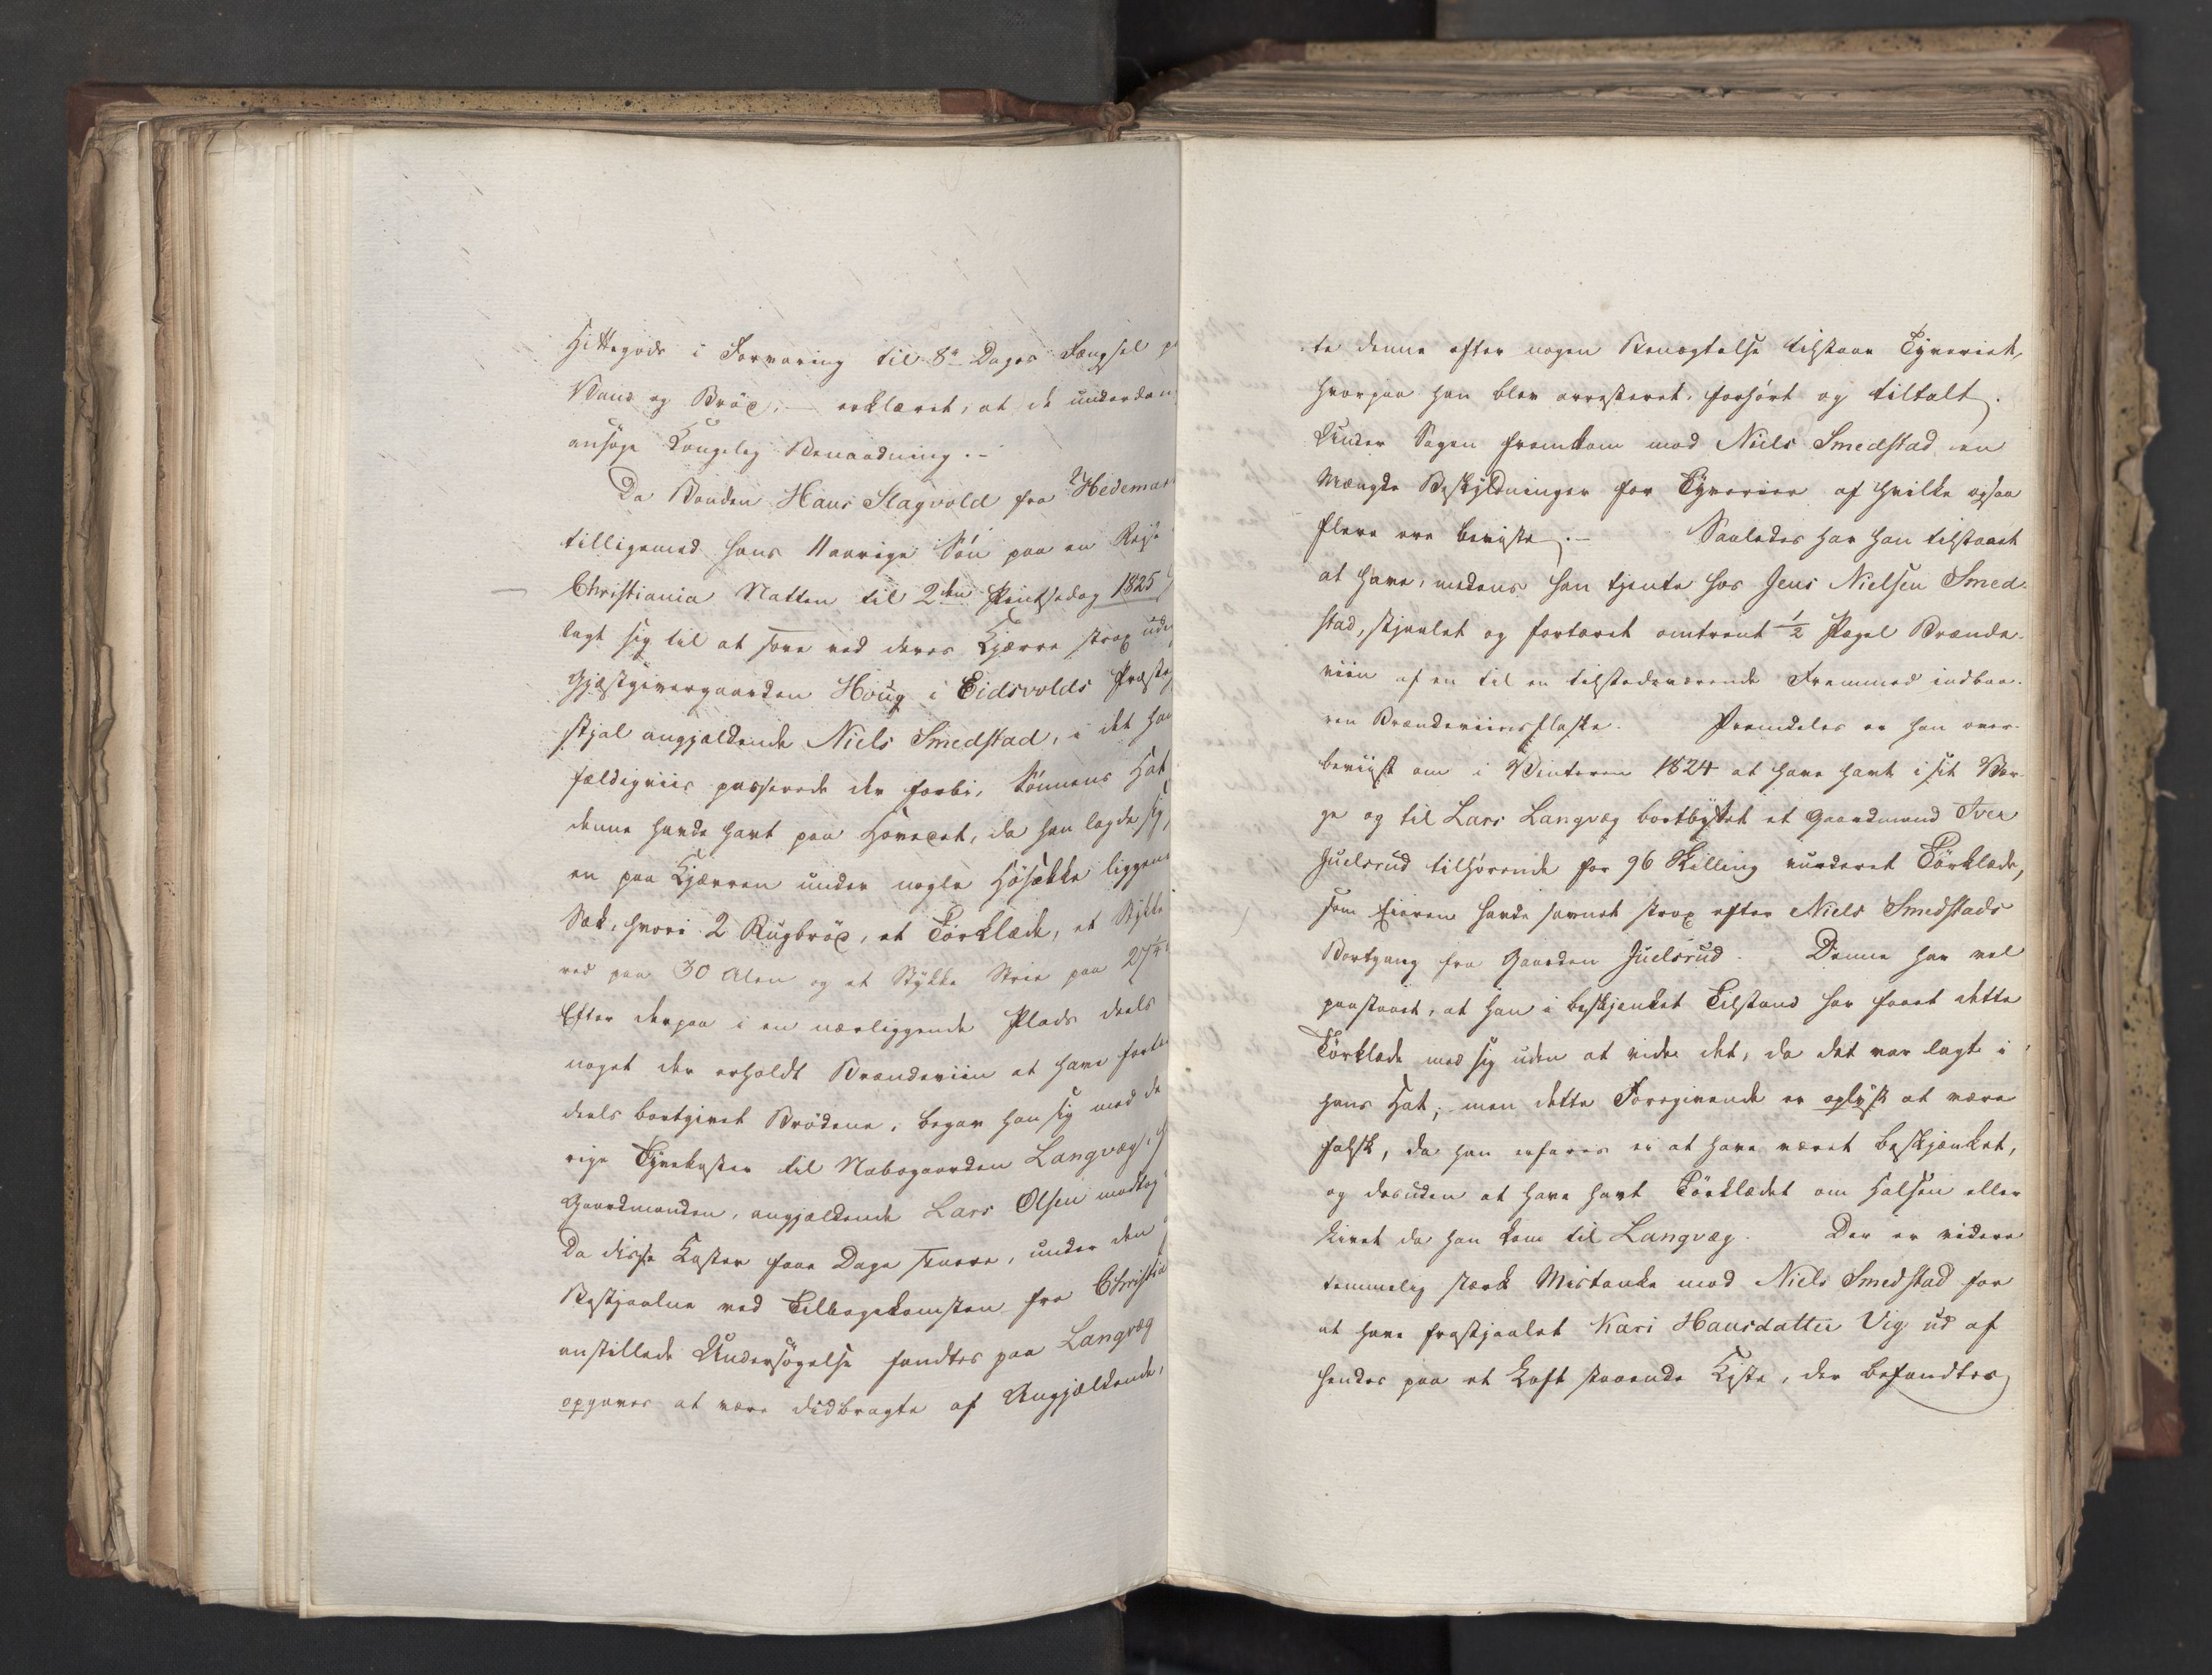 Hittegods i Forvaring til 8te Dages Fængsel p
Vand og Brød, — erklæret, at de underdan
ansøge Kongelig Benaadning. —
Da Bonden Hans Slagvold fra Hedemar
tilligemed hans 11aarige Søn paa en Rejse
Christiania Natten til 2den Pintsedag 1825
lagt sig til at sove ved deres Kjærre strax uden
Gjæstgivergaarden Houg i Eidsvolds Præsteg
stjal angjældende Niels Smedstad, i det han
fældigviis passerede der forbi, Sønnens Hat
denne havde havt paa Hovedet, da han lagde sig,
en paa Kjærren under nogle Høsække liggen
Sæk, hvori 2 Rugbrød, et Tørklæde, et Stykke
ved paa 30 Alen og et Stykke Strie paa 27¼
Efter derpaa i en nærliggende Plads deels
noget der erholdt Brændeviin at have forte
deels bortgivet Brødene, begav han sig med de
rige Tyvekoster til Nabogaarden Langvæg,
Gaardmanden, angjældende Lars Olsen modtog
Da disse Koster faae Dage senere, under den
Bestjaalne ved Tilbagekomsten fra Christia
anstillede Undersøgelse fandtes paa Langvæg
opgaves at være didbragte af Angjældende,
te denne efter nogen Benægtelse tilstaae Tyveriet,
hvorpaa han blev arresteret, forhørt og tiltalt.
Under Sagen fremkom mod Niels Smedstad en
Mængde Beskyldninger for Tyverier af hvilke ogsaa
flere ere beviiste. — Saaledes har han tilstaaet
at have, medens han tjente hos Jens Nielsen Smed-
stad, stjaalet og fortæret omtrent ½ Pægel Brænde-
viin af en til en tilstedeværende Fremmed indbaa-
ren Brændeviinsflaske. Fremdeles er han over-
beviist om i Vinteren 1824 at have havt i sit Vær-
ge og til Lars Langvæg bortbyttet et Gaardmand Iver
Juelsrud tilhørende for 96 Skilling vurderet Tørklæde,
som Eieren havde savnet strax efter Niels Smedstads
Bortgang fra Gaarden Juelsrud. Denne har vel
paastaaet, at han i beskjenket Tilstand har faaet dette
Tørklæde med sig uden at vide det, da det var lagt i
hans Hat, men dette Foregivende er oplyst at være
falsk, da han erfares ei at have været beskjænket,
og desuden at have havt Tørklædet om Halsen eller
Livet da han kom til Langvæg. Der er videre
temmelig stærk Mistanke mod Niels Smedstad for
at have frastjaalet Kari Hansdatter Vig ud af
hendes paa et Loft staaende Kiste, der befandtes